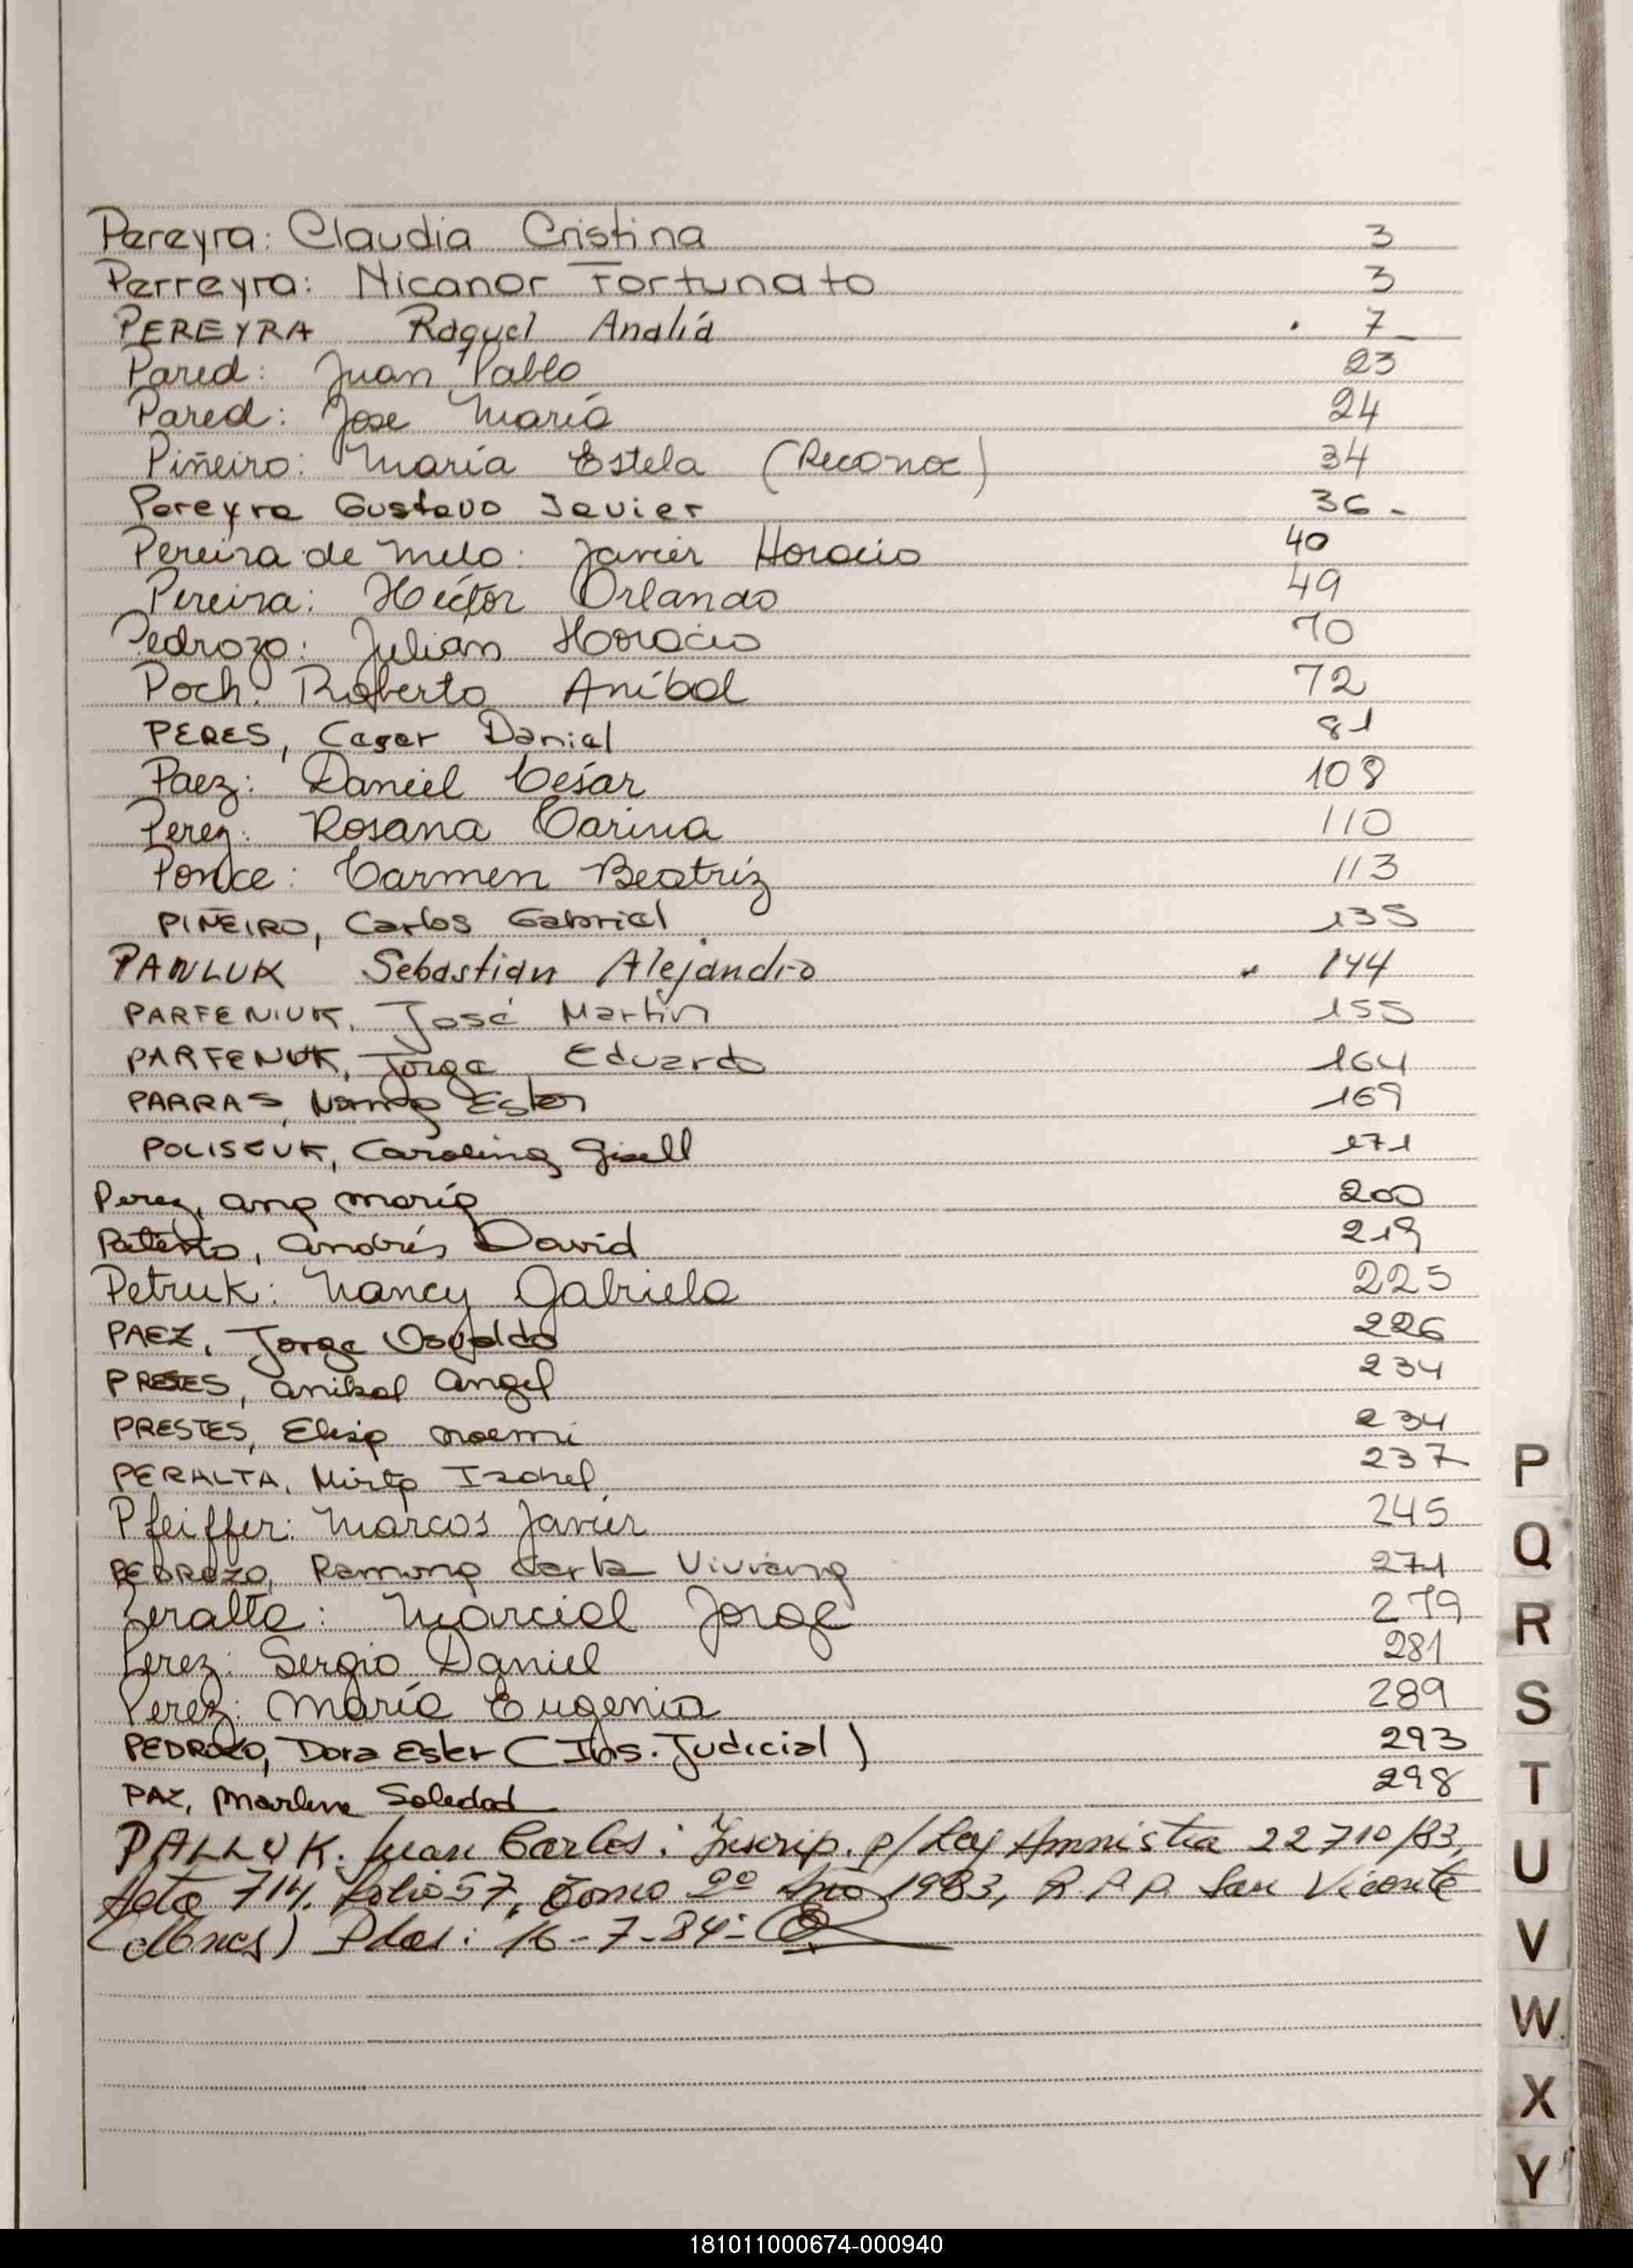 Pereyra: Claudia Cristina 3
Perreyra: Nicanor Fortunato 3
PEREYRA Raquel Analía . 7
Pared: Juan Pablo 23
Pared: Jose María 24
Piñeiro: María Estela (Reconoc) 34
Pereyra Gustavo Javier 36-
Pereira de Melo: Javier Horacio 40
Pereira: Héctor Orlando 49
Pedrozo: Julian Horacio 70
Poch: Roberto Aníbal 72
PERES, Cesar Daniel 81
Paez: Daniel César 108
Perez: Rosana Carina 110
Ponce: Carmen Beatríz 113
PIÑEIRO, Carlos Gabriel 135
PANLUK Sebastian Alejandro 144
PARFENIUK, José Martin 155
PARFENUK, Jorge Eduardo 164
PARRAS, Norma Ester 169
POLISZUK, Carolina Gisell 171
Perez, Ana María 200
Andrés David 219
Petruk: Nancy Gabriela 225
PAEZ, Jorge Osvaldo 226
Anibal Angel 234
PRESTES, Elisa Noemi 234
PERALTA, Mirta Isabel 237
Pfeiffer: Marcos Javier 245
PEDROZO, Ramona Carla Viviana 271
Peralta: Marcial Jorge 279
Perez: Sergio Daniel 281
Perez: María Eugenia 289
PEDROZO, Dora Ester (Ins. Judicial) 293
PAZ, Marlene Soledad 298
PALLUK. Juan Carlos: Inscrip. p/ Ley Amnistia 22710/83,
Acta 714, folio 57, Tomo 2º Año 1983, R P P San Vicente
(Mnes) Pdas: 16-7-84-
P
Q
R
S
T
U
V
W
X
Y
181011000674-000940